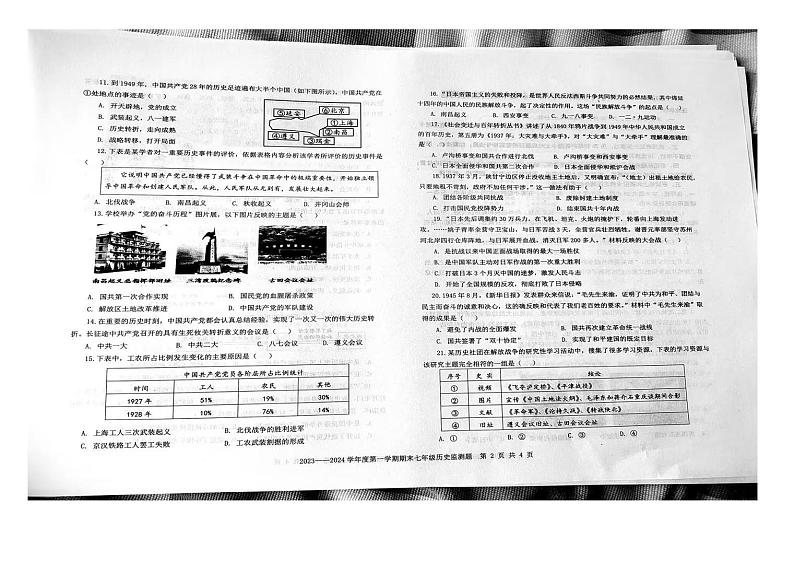 11. 到 1949 年，中国共产党 28 年的历史足迹遍布大半个中国（如下图所示），中国共产党在
①处地点的事迹是（　　）
A. 开天辟地，党的成立
B. 武装起义，八一建军
C. 历史转折，走向成熟
D. 战略转移，打开局面
⑤延安
⑥北京
①上海
②南昌
④遵义
③瑞金
12. 下表是某学者对一重要历史事件的评价，依据表格内容分析该学者所评价的历史事件是
（　　）
它说明中国共产党已经懂得了武装斗争在中国革命中的极端重要性，开始独立领
导中国革命和创建人民军队。从此，人民军队从无到有，发展壮大起来。
A. 北伐战争　B. 南昌起义　C. 秋收起义　D. 井冈山会师
13. 学校举办“党的奋斗历程”图片展，以下图片反映的主题是（　　）
南昌起义总指挥部旧址　三湾改编纪念碑　古田会议会址
A. 国共第一次合作实现　B. 国民党的血腥屠杀政策
C. 解放区土地改革推进　D. 中国共产党的军队建设
14. 在重要的历史时刻，中国共产党都会认真总结经验，实现了一次又一次的伟大历史转
折。长征途中共产党召开的具有生死攸关转折意义的会议是（　　）
A. 中共一大　B. 中共二大　C. 八七会议　D. 遵义会议
15. 下表中，工农所占比例发生变化的主要原因是（　　）
中国共产党党员各阶层所占比例统计
时间　工人　农民　其他
1927 年　51%　19%　30%
1928 年　10%　76%　14%
A. 上海工人三次武装起义　B. 北伐战争的胜利进军
C. 京汉铁路工人罢工失败　D. 工农武装割据的形成
16. “日本帝国主义的失败和投降，是世界人民反法西斯斗争共同努力的必然结果，其中绵延
十四年的中国人民的民族解放斗争，起了决定性的作用。这场“民族解放斗争”的起点是（　　）
A. 南昌起义　B. 西安事变　C. 九一八事变　D. 一二·九运动
17. 《社会变迁与百年转折丛书》讲述了从 1840 年鸦片战争到 1949 年中华人民共和国成立
的百年历史，第五册为《1937 年，大灾难与大牵手》，对“大灾难”与“大牵手”理解最准确的
是（　　）
A. 卢沟桥事变和国共合作进行北伐　B. 卢沟桥事变和西安事变
C. 日本全面侵华和国共第二次合作　D. 日本全面侵华和抢沪会战
18. 1937 年 3 月，陕甘宁边区停止没收地主土地后，又明确宣布：“（地主）出租土地给农民，
只要地租不苛刻，政府不加任何干涉。”这一做法有助于（　　）
A. 团结各阶级共同抗战　B. 废除封建土地制度
C. 打击国民党投降势力　D. 结束国共十年内战
19. “日本先后调集约 30 万兵力，在飞机、坦克、火炮的掩护下，轮番向上海发动进
攻。……姚子青率全营守卫宝山，与日军激战 3 天，全营官兵壮烈牺牲。谢晋元率部坚守苏州
河北岸四行仓库阵地，与日军展开血战，消灭日军 200 多人。”材料反映的大会战（　　）
A. 是抗战以来中国正面战场取得的首次胜利
B. 是中国军队主动对日军作战的第一次胜利
C. 打破日本 3 个月灭中国的迷梦，激励人民斗志
D. 开始了全国规模的反攻，彻底打败了日本侵略
20. 1945 年 8 月，《新华日报》发表群众来信说：“毛先生来渝，证明了中共为和平、团结与
民主而奋斗的诚意和决心，这的确反映和代表了我们老百姓的要求。”材料中“毛先生来渝”取
得的成果是（　　）
A. 避免了内战的全面爆发　B. 国共再次建立革命统一战线
C. 国共签署了“双十协定”　D. 实现了和平建国的既定目标
21. 某历史社团在解放战争的研究性学习活动中，搜集了很多学习资源，下表的学习资源与
该研究主题完全相符的一组是（　　）
序号　史实　结论
①　视频　《飞夺泸定桥》、《平津战役》
②　图片　宣传《中国土地法大纲》、毛泽东和蒋介石重庆谈判间合影
③　文献　《革命军》、《论持久战》、《转战陕北》
④　旧址　遵义会议旧址、古田会议会址
A. ①　B. ②　C. ③　D. ④
2023——2024 学年度第一学期期末七年级历史监测题　第 2 页 共 4 页